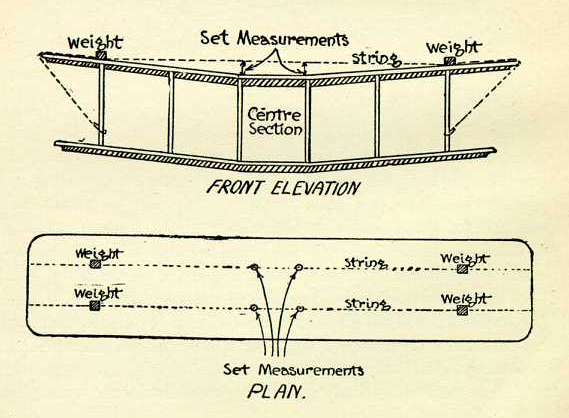 Weight
Set Measurements
String
Weight
Centre
Section
FRONT ELEVATION
Weight
String
Weight
Weight
String
Weight
Set Measurements
PLAN.